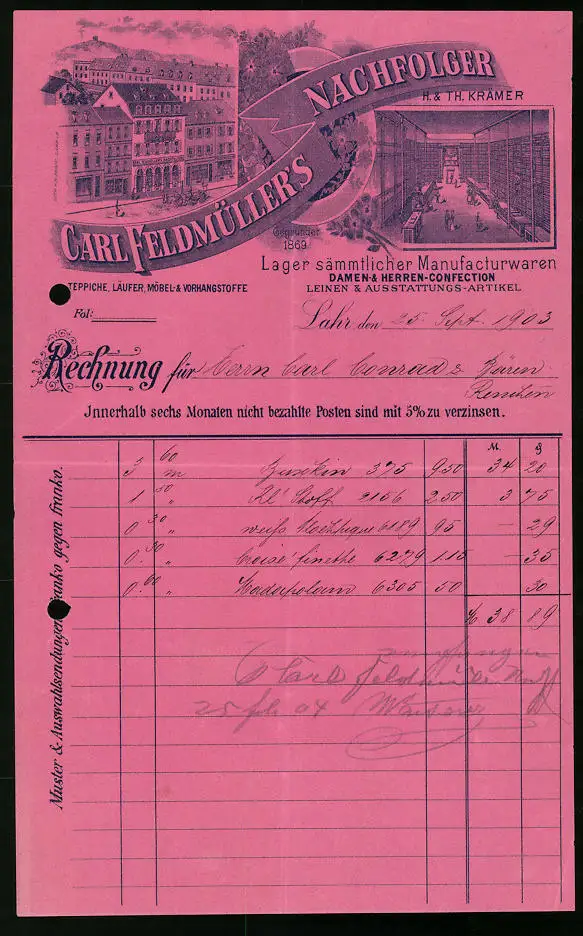 CARL FELDMÜLLER'S NACHFOLGER
H. & TH. KRÄMER
Gegründet
1869
Lager sämmtlicher Manufacturwaren
DAMEN- & HERREN-CONFECTION
LEINEN & AUSSTATTUNGS-ARTIKEL
TEPPICHE, LÄUFER, MÖBEL- & VORHANGSTOFFE
Fol:
Lahr, den 25. Sept. 1903
Rechnung für Herrn Carl Conrad z. Bären
Renchen
Innerhalb sechs Monaten nicht bezahlte Posten sind mit 5% zu verzinsen.
Muster & Auswahlsendungen franko gegen franko.
M. ₰
3 60 m Buxkin 375 950 34 20
1 50 „ Kl' Stoff 2156 250 3 75
0.30 „ weiss 6189 95 — 29
0.30 „ Croise finette 6279 1.15 — 35
0.60 „ Madapolam 6305 50 30
M 38 89
empfangen
Carl Feldmüller Nachf
25 feb 04